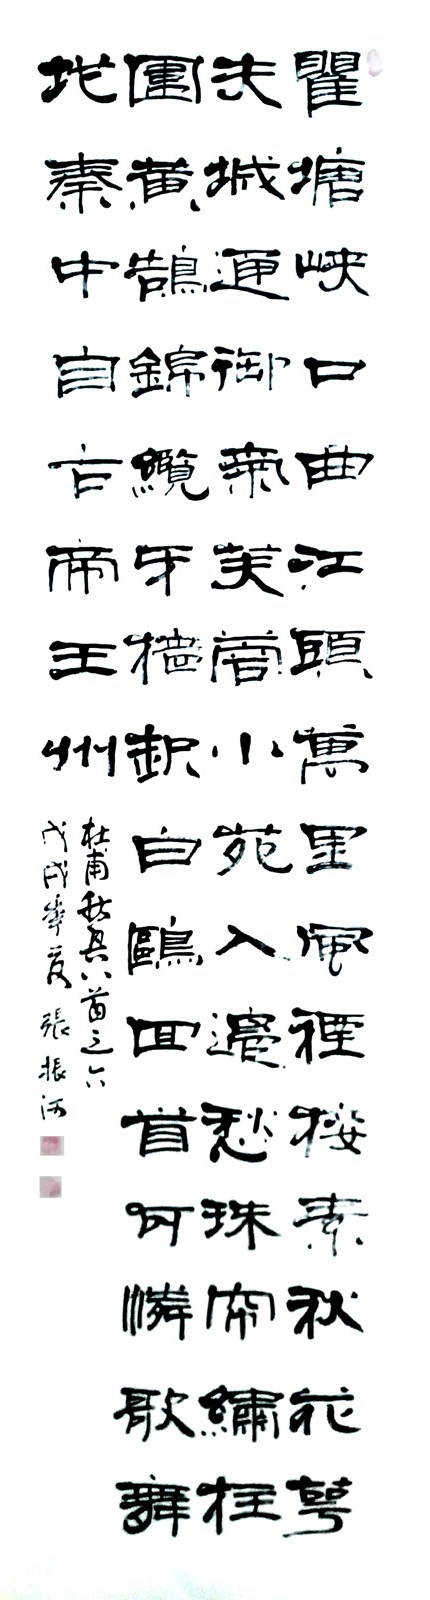 瞿塘峡口曲江頭萬里風煙接素秋花萼
夹城通御氣芙蓉小苑入邊愁珠帘繡柱
圍黄鵠錦纜牙檣起白鷗回首可憐歌舞
地秦中自古帝王州
杜甫秋興八首之六
戊戌年夏張振河